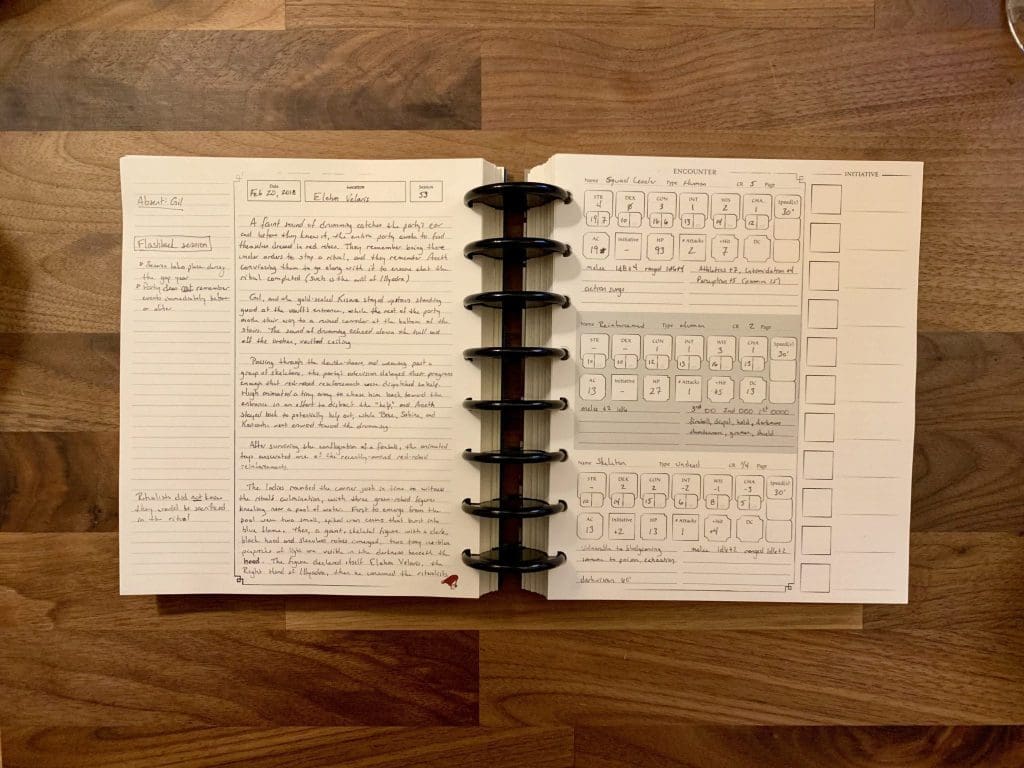 Absent: Gil
Flashback session
Scenes take place during
the gap year
Party does not remember
events immediately before
or after
Ritualists did not know
they would be sacrificed
in the ritual
Date
Feb 20, 2018
Location
Elahm Velaris
Session
53
A faint sound of drumming catches the party's ear
and before they knew it, the entire party awoke to find
themselves dressed in red robes. They remember being there
under orders to stop a ritual, and they remember
convincing them to go along with it to ensure that the
ritual completed (such is the will of Illyadra)
Gil, and the gold-sealed stayed upstairs standing
guard at the vault's entrance, while the rest of the party
made their way to a ruined corridor at the bottom of the
stairs. The sound of drumming echoed down the hall and
off the broken, vaulted ceiling
Passing through the double-doors and weaving past a
group of skeletons, the party's delayed their progress
enough that red-robed reinforcements were dispatched to help.
Hugh animated a tiny army to chase him back toward the
entrance in an effort to distract the "help," and
stayed back to potentially help out, while Bree, Sabine, and
went onward toward the drumming.
After surviving the conflagration of a fireball, the animated
toys one of the recently-arrived red-robed
reinforcements.
The ladies rounded the corner just in time to witness
the ritual's culmination, with three green-robed figures
kneeling near a pool of water. First to emerge from the
pool were two small, spiked iron that burst into
blue flame. Then, a giant, skeletal figure with a dark,
black hood and sleeveless robes emerged, two tiny
pinpricks of light are visible in the darkness beneath the
hood. The figure declared itself Elahm Velaris, the
Right Hand of Illyadra, then he consumed the ritualists
ENCOUNTER
Name Squad Leader Type Human CR 5 Page
STR DEX CON INT WIS CHA Speed(s)
4 0 3 1 2 1 30'
19 7 10 16 6 13 14 12
AC Initiative HP # Attacks +Hit DC
19 - 93 2 7
melee 1d8+4 ranged 1d6+4 Athletics +7, Intimidation +4
Perception +5 (passive 15)
action surge
Name Reinforcement Type Human CR 2 Page
STR DEX CON INT WIS CHA Speed(s)
- - 1 1 3 1 30'
10 10 12 13 16 13
AC Initiative HP # Attacks +Hit DC
13 - 27 1 +5 13
melee +2 1d6 3rd 00 2nd 000 1st 0000
fireball, dispel, hold, darkness
thunderwave, grease, shield
Name Skeleton Type Undead CR 1/4 Page
STR DEX CON INT WIS CHA Speed(s)
- 2 2 -2 -1 -3 30'
10 14 15 6 8 5
AC Initiative HP # Attacks +Hit DC
13 +2 13 1 +4
Vulnerable to bludgeoning melee 1d6+2 ranged 1d6+2
immune to poison, exhaustion
darkvision 60'
INITIATIVE